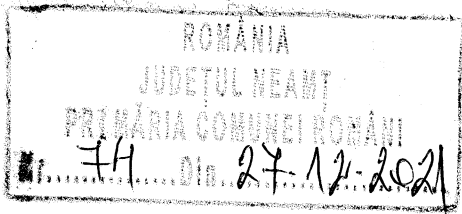 ROMÂNIA
JUDEȚUL NEAMȚ
PRIMĂRIA COMUNEI ROMÂNI
Nr. 74 Din 27-12-2021